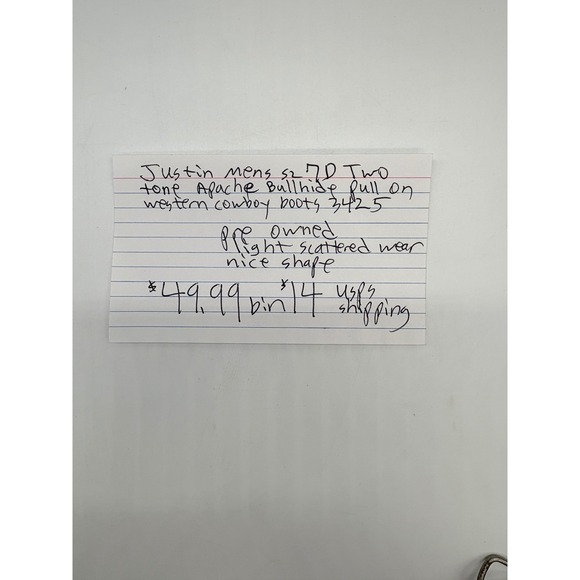 Justin mens sz 7D Two
tone Apache Bullhide pull on
western cowboy boots 3425
pre owned
light scattered wear
nice shape
$49.99 bin $14 usps
shipping